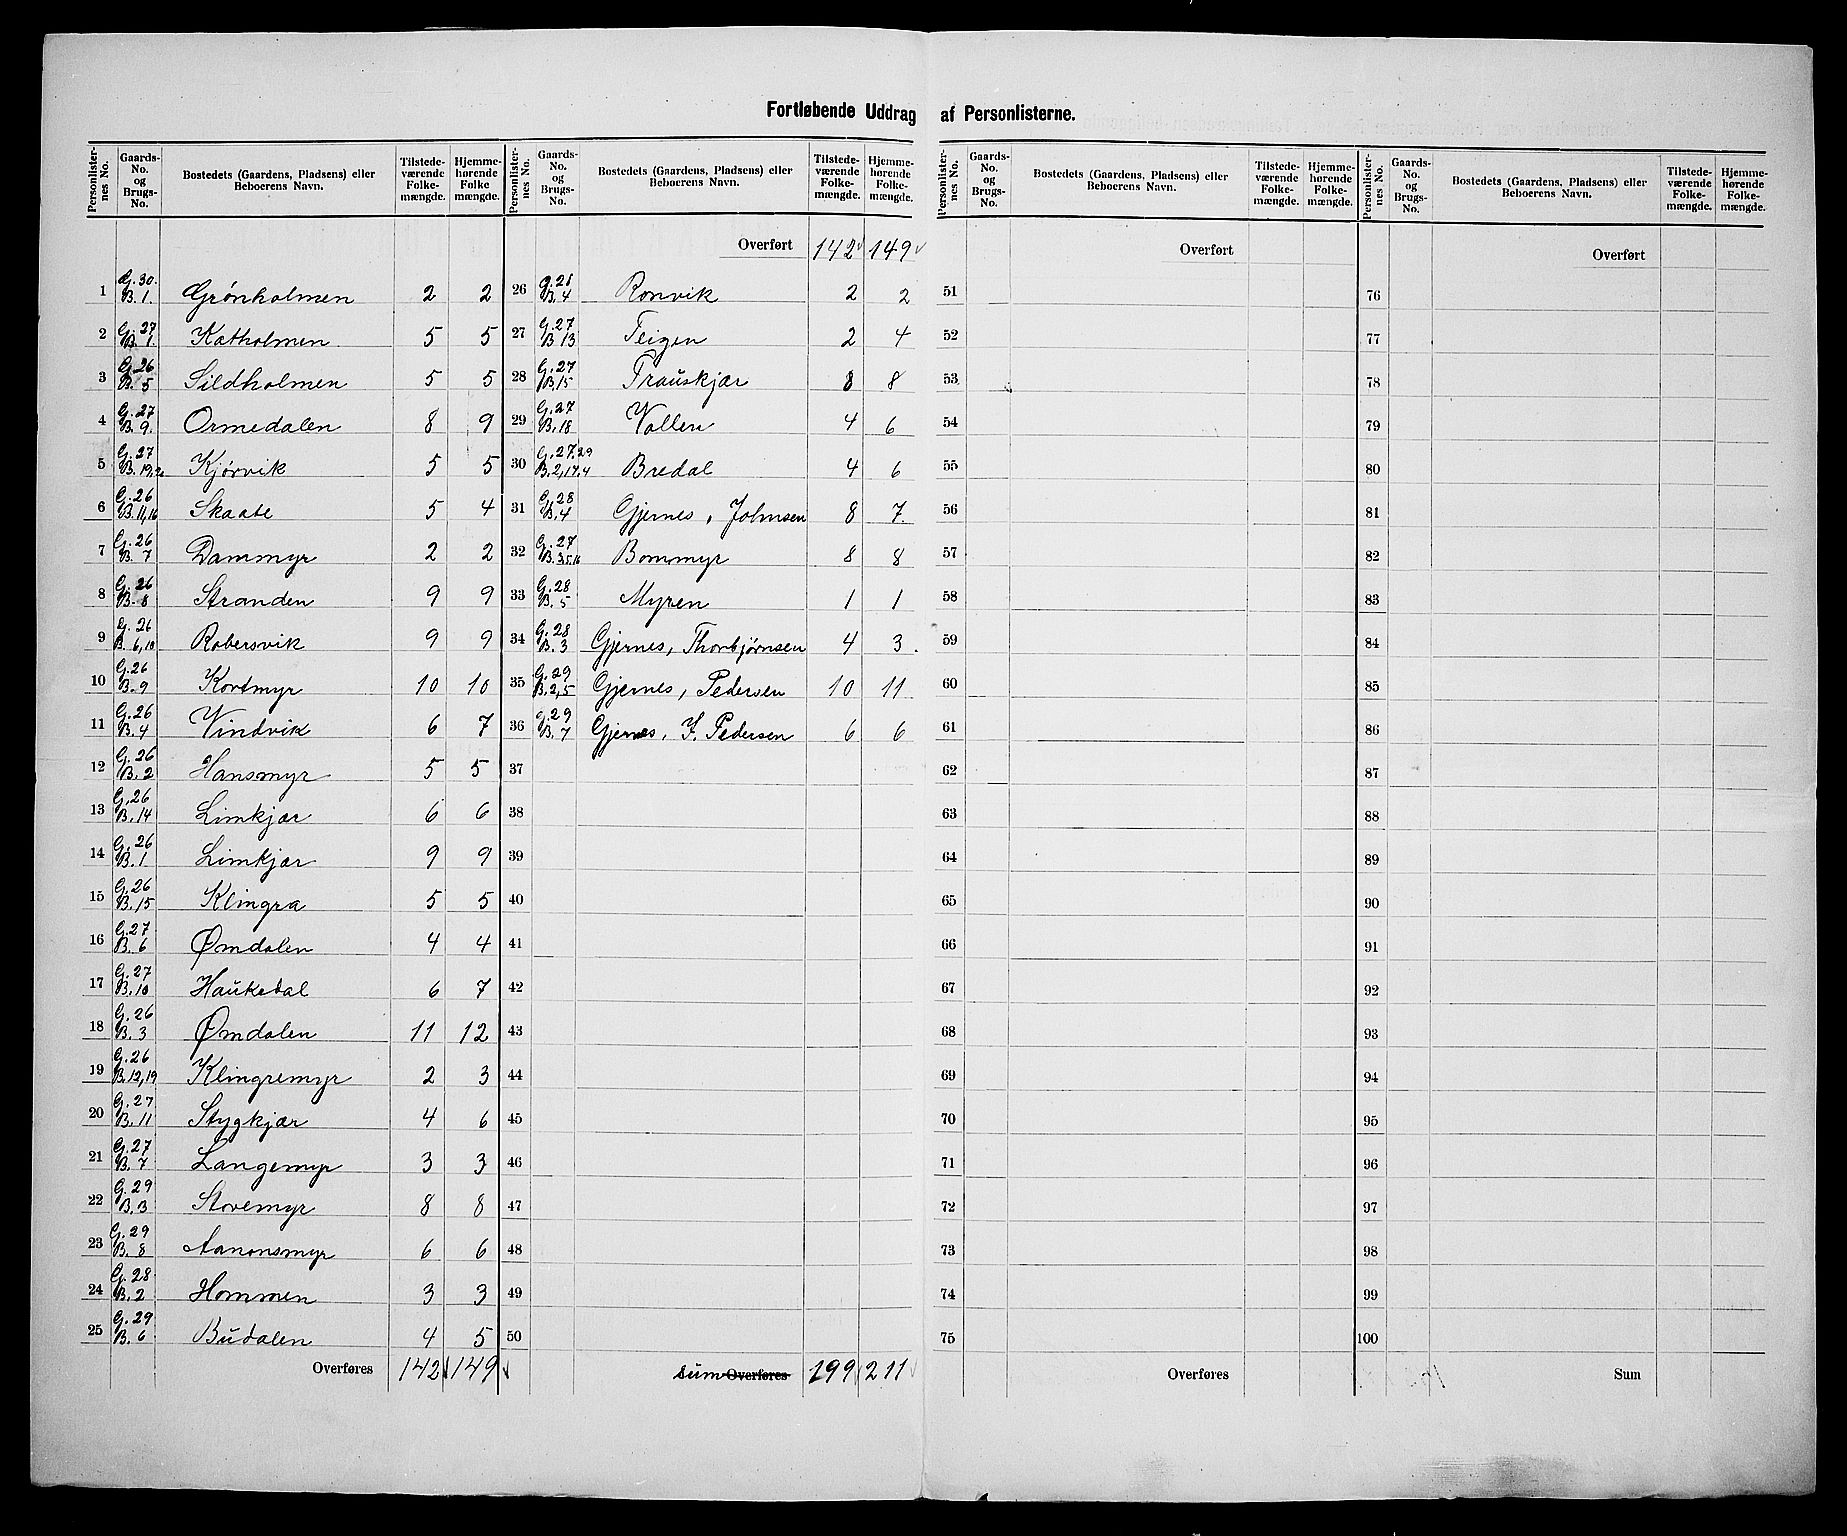 Fortløbende Uddrag af Personlisterne.
Personlister-nes No. | Gaards-No. og Brugs-No. | Bostedets (Gaardens, Pladsens) eller Beboerens Navn. | Tilstede-værende Folke-mængde. | Hjemme-hørende Folke mængde.
1 G. 30. B. 1. Grönholmen 2 2
2 G. 27 B. 1. Katholmen 5 5
3 G. 26 B. 5 Sildholmen 5 5
4 G. 27 B. 9. Ormedalen 8 9
5 G. 27 B. 19,20 Kjørvik 5 5
6 G. 26 B. 11,16 Skaate 5 4
7 G. 26 B. 7 Dammyr 2 2
8 G. 26 B. 8 Stranden 9 9
9 G. 26 B. 6,10 Robersvik 9 9
10 G. 26 B. 9 Kortmyr 10 10
11 G. 26 B. 4 Vindvik 6 7
12 G. 26 B. 2 Hansmyr 5 5
13 G. 26 B. 14 Limkjær 6 6
14 G. 26 B. 1 Limkjær 9 9
15 G. 26 B. 15 Klingra 5 5
16 G. 27 B. 6 Ømdalen 4 4
17 G. 27 B. 10 Haukedal 6 7
18 G. 26 B. 3 Ømdalen 11 12
19 G. 26 B. 12,19 Klingremyr 2 3
20 G. 27 B. 11 Stygkjær 4 6
21 G. 27 B. 7 Langemyr 3 3
22 G. 29 B. 3 Stovemyr 8 8
23 G. 29 B. 8 Aanonsmyr 6 6
24 G. 28 B. 2 Hommen 3 3
25 G. 29 B. 6 Budalen 4 5
Overføres 142 149
Personlister-nes No. | Gaards-No. og Brugs-No. | Bostedets (Gaardens, Pladsens) eller Beboerens Navn. | Tilstede-værende Folke-mængde. | Hjemme-hørende Folke-mængde.
Overført 142 149
26 G. 28 B. 4 Ronvik 2 2
27 G. 27 B. 13 Teigen 2 4
28 G. 27 B. 15 Trauskjær 8 8
29 G. 27 B. 18 Vollen 4 6
30 G. 27,29 B. 2,17,4 Bredal 4 6
31 G. 28 B. 4 Gjernes, Johnsen 8 7.
32 G. 27 B. 3,5,16 Bommyr 8 8
33 G. 28 B. 5 Myren 1 1
34 G. 28 B. 3 Gjernes, Thorbjørnsen 4 3.
35 G. 29 B. 2,5 Gjernes, Pedersen 10 11
36 G. 29 B. 7 Gjernes, J. Pedersen 6 6
37
38
39
40
41
42
43
44
45
46
47
48
49
50
sum Overføres 199 211
Personlister-nes No. | Gaards-No. og Brugs-No. | Bostedets (Gaardens, Pladsens) eller Beboerens Navn. | Tilstede-værende Folke-mængde. | Hjemme-hørende Folke-mængde.
Overført
51
52
53
54
55
56
57
58
59
60
61
62
63
64
65
66
67
68
69
70
71
72
73
74
75
Overføres
Personlister-nes No. | Gaards-No. og Brugs-No. | Bostedets (Gaardens, Pladsens) eller Beboerens Navn. | Tilstede-værende Folke-mængde. | Hjemme-hørende Folke-mængde.
Overført
76
77
78
79
80
81
82
83
84
85
86
87
88
89
90
91
92
93
94
95
96
97
98
99
100
Sum